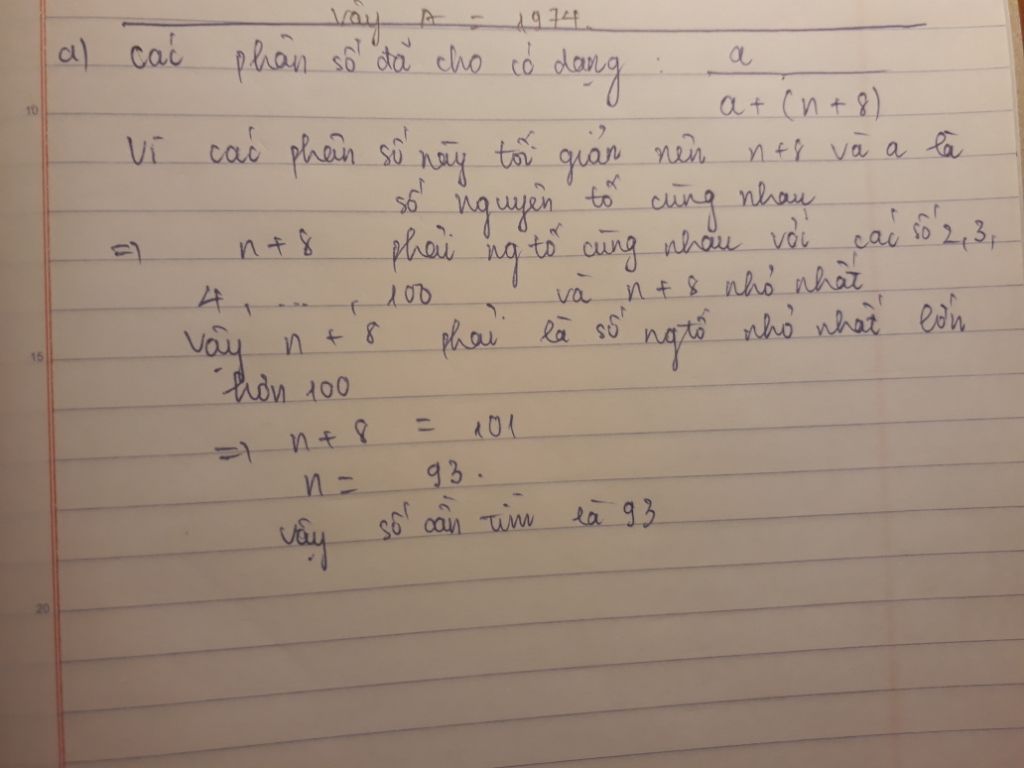 Vậy A = 1974.
a) Các phân số đã cho có dạng : a
a + (n + 8)
Vì các phân số này tối giản nên n+8 và a là
số nguyên tố cùng nhau
=> n + 8 phải ng tố cùng nhau với các số 2, 3,
4, ..., 100 và n + 8 nhỏ nhất
Vậy n + 8 phải là số ng tố nhỏ nhất lớn
hơn 100
=> n + 8 = 101
n = 93.
Vậy số cần tìm là 93
10
15
20